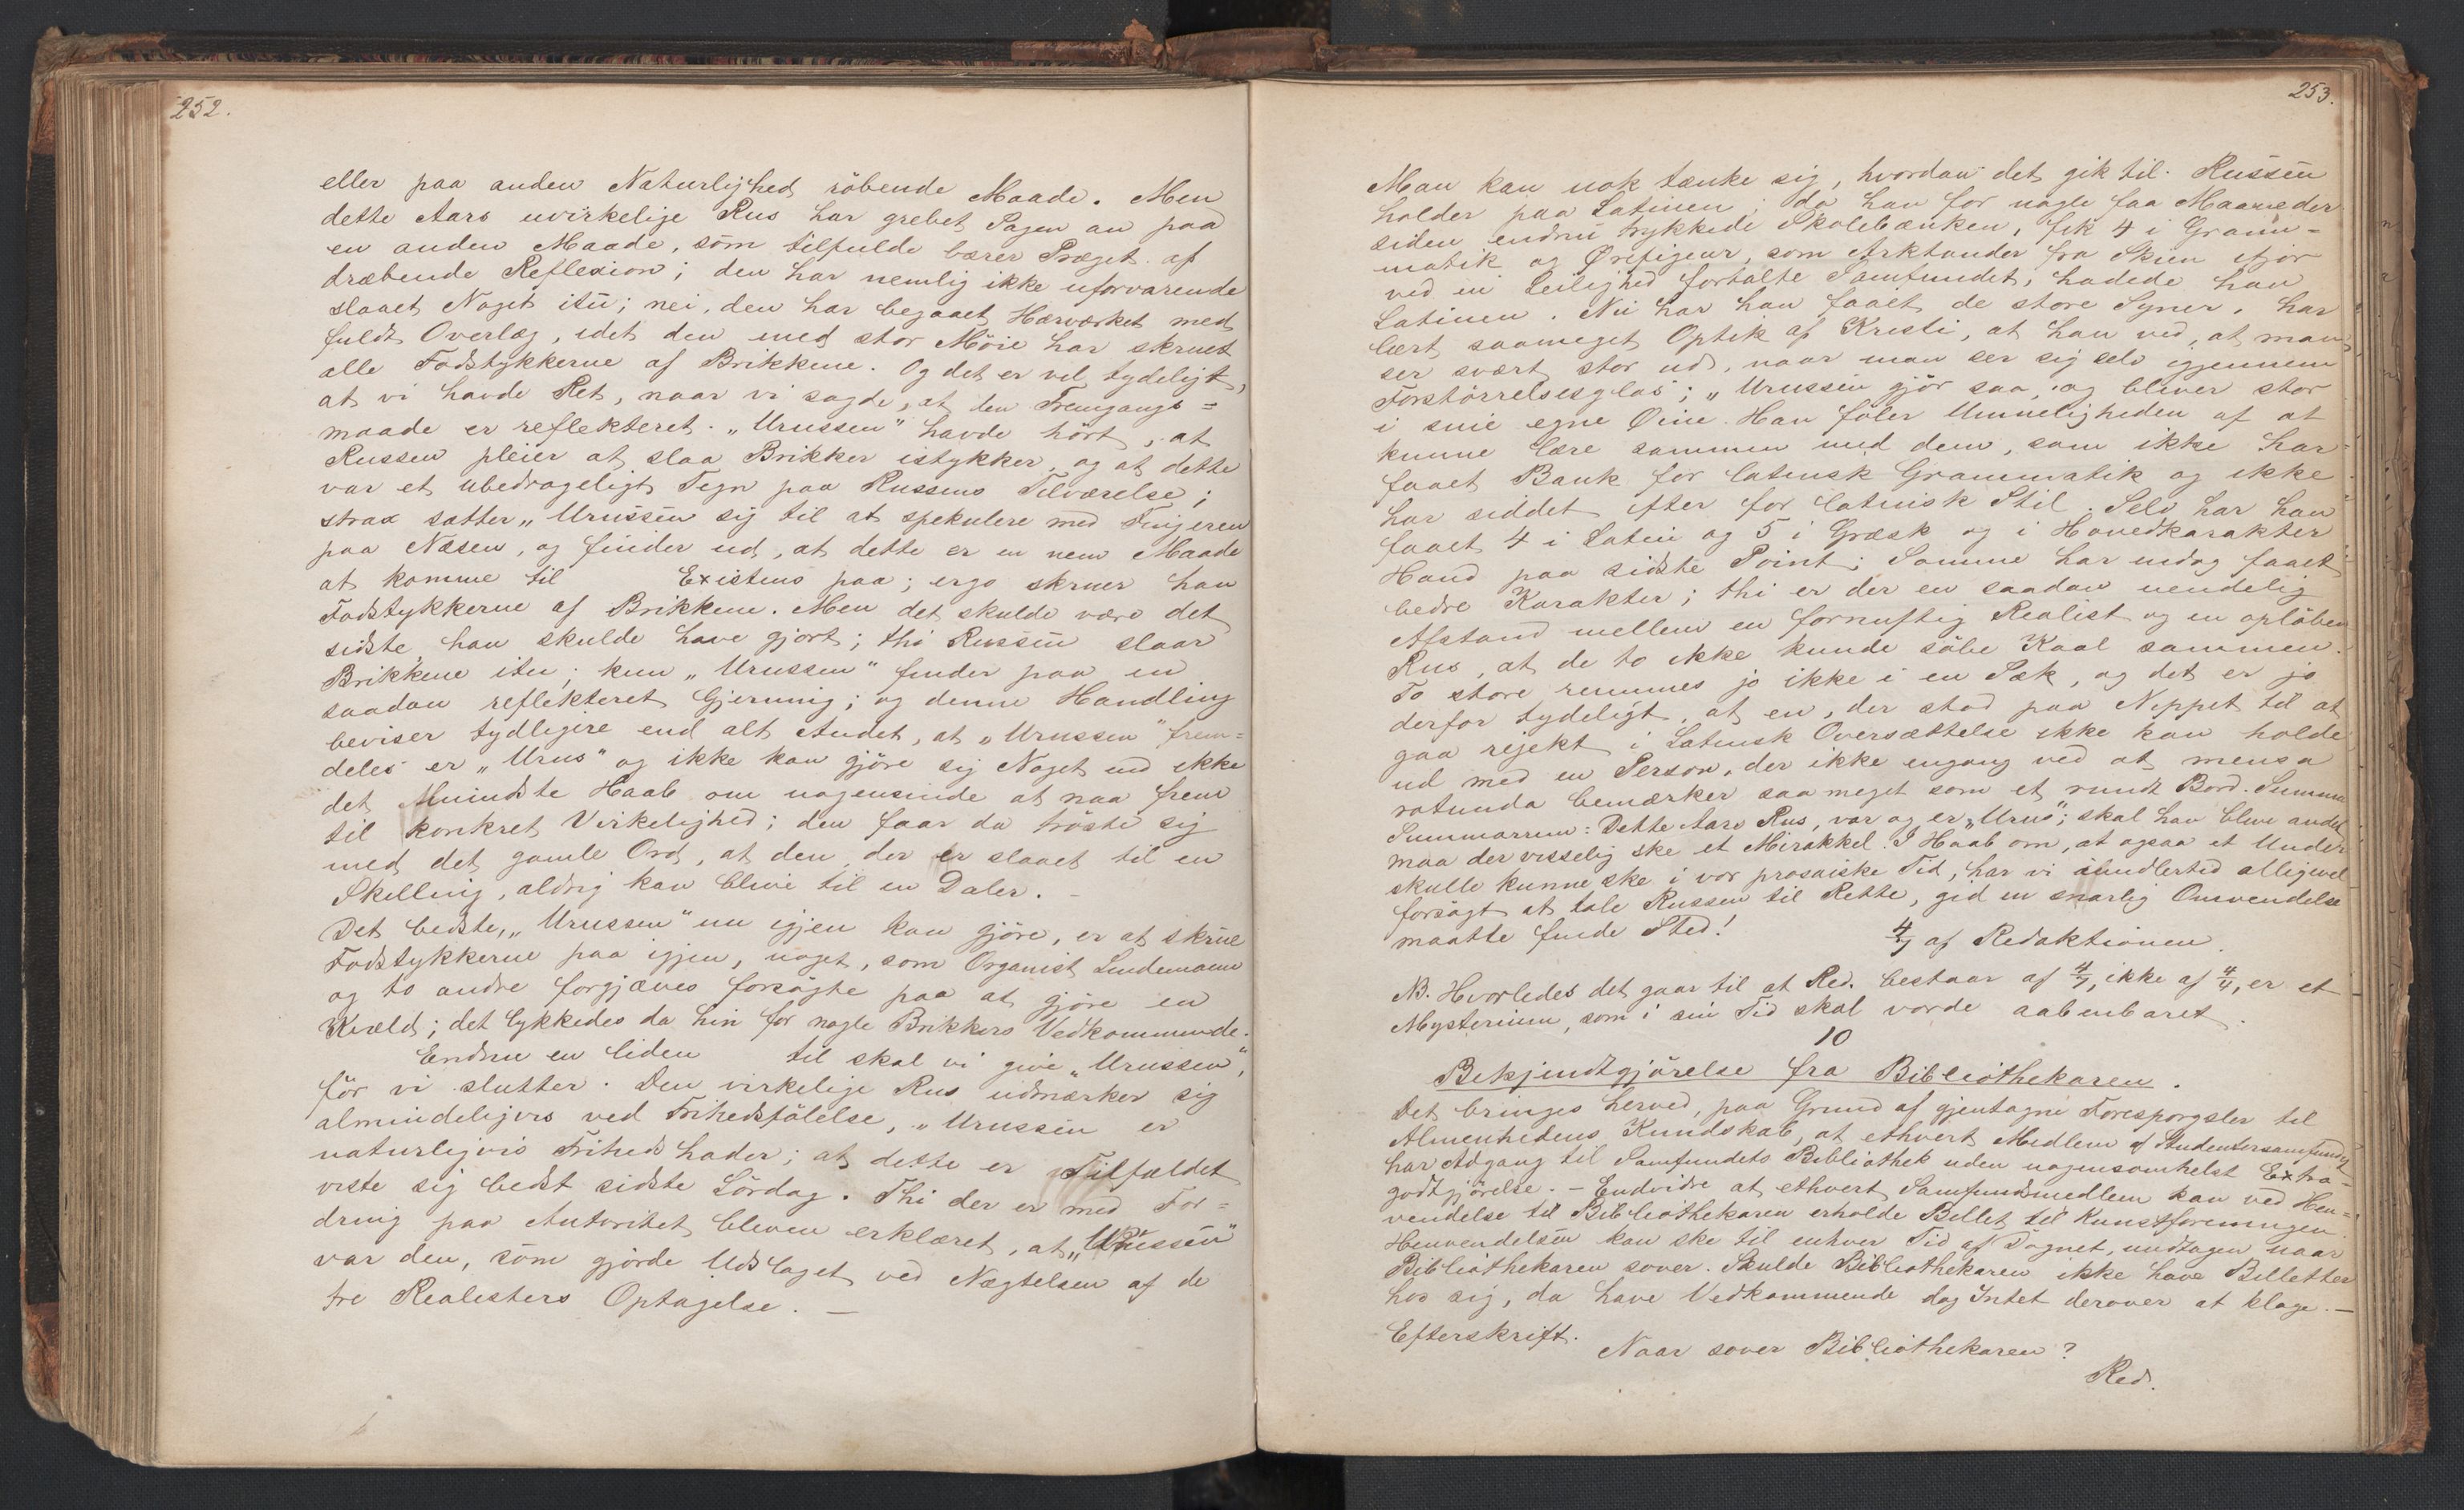 252.
eller paa anden Naturlighed röbende Maade. Men
dette Aars uvirkelige Rus har grebet Sagen an paa
en anden Maade, som tilfulde bærer Præget af
dræbende Reflexion; den har nemlig ikke uforvarende
slaaet Noget itu; nei, den har begaaet Hærværket med
fuldt Overlæg, idet den med stor Möie har skruet
alle Fodstykkerne af Brikkene. Og det er vel tydeligt,
at vi havde Ret, naar vi sagde, at den Fremgangs=
maade er reflekteret. „Urussen" havde hört, at
Russen pleier at slaa Brikker istykker, og at dette
var et ubedrageligt Tegn paa Russens Tilværelse;
strax sætter „Urussen sig til at spekulere med Fingeren
paa Næsen, og finder ud, at dette er en nem Maade
at komme til Existens paa; ergo skruer han
Fodstykkerne af Brikkene. Men det skulde være det
sidste, han skulde have gjort; thi Russen slaar
Brikkene itu; kun „Urussen" finder paa en
saadan reflekteret Gjerning; og denne Handling
beviser tydligere end alt Andet, at „Urussen" frem=
deles er „Urus" og ikke kan gjöre sig Noget ud ikke
det Mindste Haab om nogensinde at naa frem
til konkret Virkelighed; den faar da tröste sig
med det gamle Ord, at den, der er slaaet til en
Skilling, aldrig kan blive til en Daler. –
Det bedste, „Urussen" nu igjen kan gjöre, er at skrue
Fodstykkerne paa igjen, noget, som Organist Lindemann
og to andre forgjæves forsögte paa at gjöre en
Kvæld; det lykkedes da kun for nogle Brikkers Vedkommende.
Endnu en liden til skal vi give „Urussen",
för vi slutter. Den virkelige Rus udmærker sig
almindeligvis ved Frihedsfölelse, „Urussen er
naturligvis Frihedshader; at dette er Tilfældet
viste sig bedst sidste Lördag. Thi der er med For=
dring paa Autoritet bleven erklæret, at „Urussen"
var den, som gjorde Udslaget ved Nægtelsen af de
tre Realisters Optagelse. –
253.
Man kan nok tænke sig, hvordan det gik til. Russen
holder paa Latinen; da han for nogle faa Maaneder
siden endnu trykkede Skolebænken, fik 4 i Gram=
matik og Ørefigener, som Arktander fra Skien ifjor
ved en Leilighed fortalte Samfundet, hadede han
Latinen. Nu har han faaet de store Syner, har
lært saameget Optik af Kristi, at han ved, at man
ser svært stor ud, naar man ser sig selv igjennem
Forstörrelsesglas; „Urussen gjör saa, og bliver stor
i sine egne Øine. Han föler Umueligheden af at
kunne lære sammen med dem, som ikke har
faaet Bank for latinsk Grammatik og ikke
har siddet efter for latinisk Stil. Selv har han
faaet 4 i Latin og 5 i Græsk og i Hovedkarakter
Haud paa sidste Point; Somme har endog faaet
bedre Karakter; thi er der en saadan uendelig
Afstand mellem en fornuftig Realist og en oplöben
Rus, at de to ikke kunde söbe Kaal sammen.
To store rummes jo ikke i en Sæk, og det er jo
derfor tydeligt, at en, der stod paa Nippet til at
gaa rejekt i Latinsk Oversættelse ikke kan holde
ud med en Person, der ikke engang ved at mensa
rotunda bemærker saa meget som et rundt Bord. Summa
Summarum: Dette Aars Rus, var og er „Urus"; skal han blive andet
maa der visselig ske et Mirakkel. I Haab om, at ogsaa et Under
skulle kunne ske i vor prosaiske Tid, har vi imidlertid alligevel
forsögt at tale Russen til Rette, gid en snarlig Omvendelse
maatte finde Sted!
4/7 af Redaktionen.
NB. Hvorledes det gaar til at Red. bestaar af 4/7, ikke af 4/4, er et
Mysterium, som i sin Tid skal vorde aabenbaret.
10
Bekjendtgjörelse fra Bibliothekaren.
Det bringes herved, paa Grund af gjentagne Forespörgsler til
Almenhedens Kundskab, at ethvert Medlem af Studentersamfundet
har Adgang til Samfundets Bibliothek uden nogensomhelst Extra-
godtgjörelse. – Endvidre at ethvert Samfundsmedlem kan ved Hen=
vendelse til Bibliothekaren erholde Billet til Kunstforeningen.
Henvendelsen kan ske til enhver Tid af Dögnet, undtagen naar
Bibliothekaren sover. Skulde Bibliothekaren ikke have Billetter
hos sig, da have Vedkommende dog Intet derover at klage. –
Efterskrift.
Naar sover Bibliothekaren?
Red.